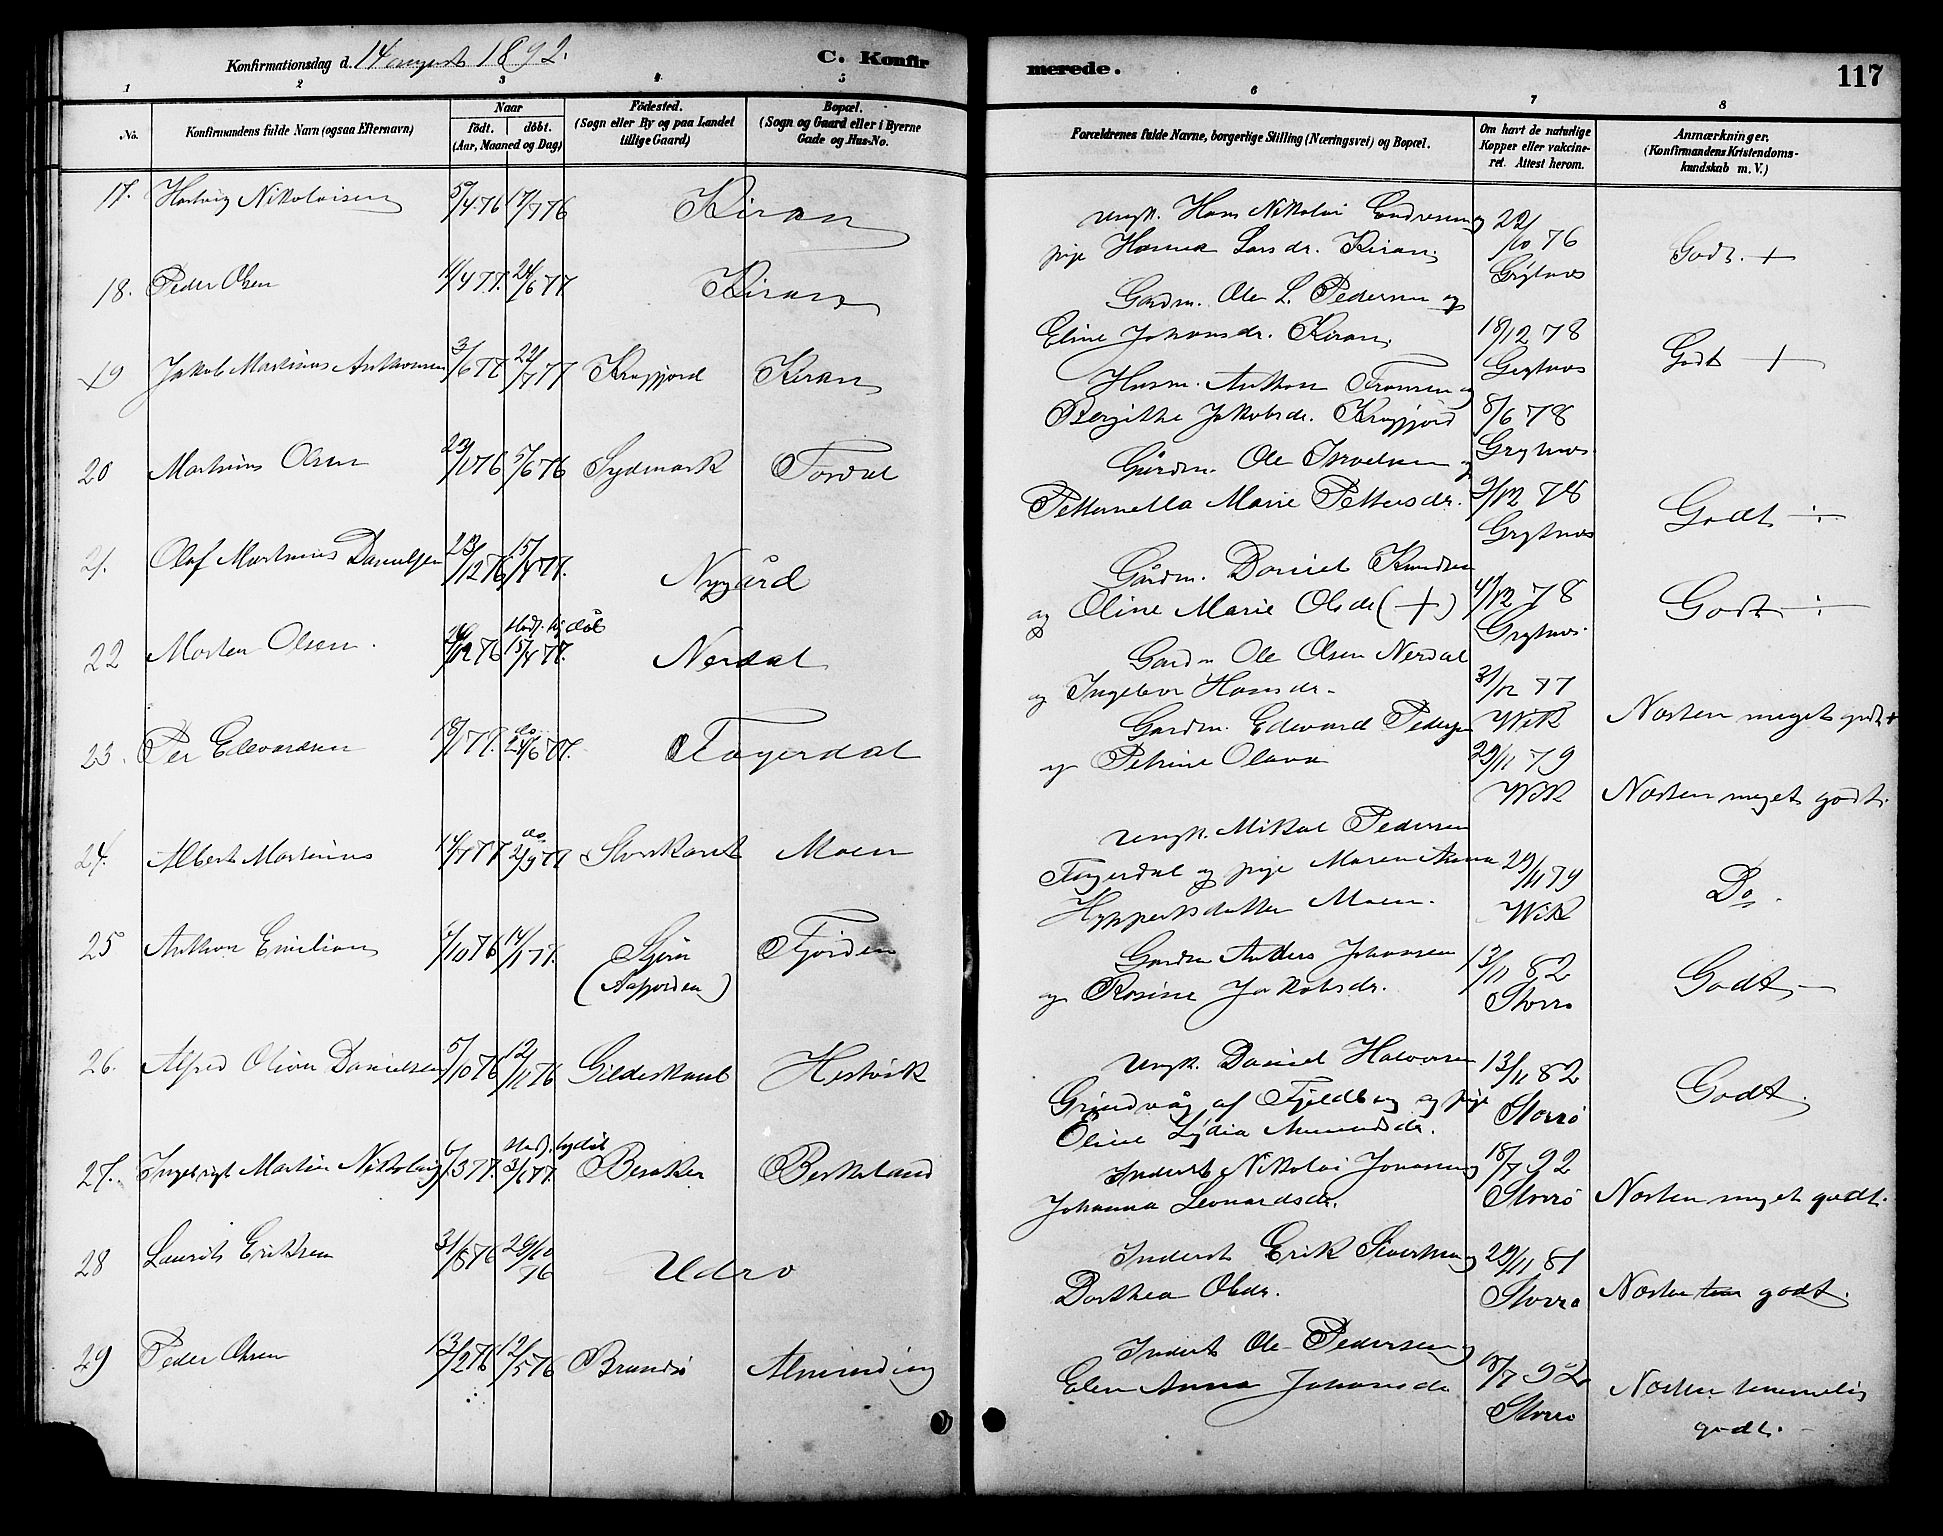 Konfirmationsdag d. 14 august 1892. C. Konfirmerede. 117
1 2 3 4 5 6 7 8
No. Konfirmandens fulde Navn (ogsaa Efternavn) Naar født. døbt. (Aar, Maaned og Dag) Fødested. (Sogn eller By og paa Landet tillige Gaard) Bopæl. (Sogn og Gaard eller i Byerne Gade og Hus-No. Forældrenes fulde Navne, borgerlige Stilling (Næringsvei) og Bopæl. Om havt de naturlige Kopper eller vakcineret. Attest herom. Anmærkninger. (Konfirmandens Kristendomskundskab m. V.)
17. Hartvig Nikolaisen 5/4 76 17/7 76 Kiran
Ungk. Hans Nikolai Endresen og 22/10 76
pige Hanna Larsdr. Kiran Grytnes Godt. +
18. Peder Olsen 11/4 77. 24/6 77 Kiran
Gardm. Ole L. Pedersen og
Eline Johansdr. Kiran. 18/12 78 Grytnes Godt +
19 Jakob Martinus Anthonsen 3/6 77 22/7 77 Krogfjord Kiran
Husm. Anthon Fransen og
Bergithe Jakobsdr. Krogfjord 8/6 78 Grytnes
20 Martinus Olsen 23/1 76 5/6 76 Sydmark Tordal
Gårdm. Ole Israelsen og
Petternella Marie Pettersdr. 3/12 78 Grytnes Godt ÷
21. Olaf Martinus Danielsen 23/12 76 15/4 77. Nygård
Gårdm. Daniel Knudsen
og Oline Marie Olsdr (+) 4/12 78 Grytnes. Godt ÷
22 Morten Olsen. 26/12 76 Stads. bygdøb 15/4 77. Nerdal
Gardm Ole Olsen Nerdal
og Ingebor Hansdr. 31/12 77 Wik Næsten meget godt +
23. Per Edevardsen 18/1 77. do. 24/6 77. Fagerdal
Gardm. Edevard Pedersen
og Petrine Olava 29/11 79 Wik Næsten meget godt.
24. Albert Martinus 14/7 77 do. 2/9 77 Storskaret Moen
Ungk. Mikal Pedersen
Fagerdal og pige Maren Anna 29/11 79
Hyppertsdatter Moen. Wik Do.
25 Anthon Emilian 6/10 76 14/1 77. Stjørn (Aafjorden) Fjorden
Gardm Anders Johansen
og Rosine Jakobsdr. 13/11 82 Storrø Godt,
26. Alfred Oliver Danielsen 5/10 76 12/11 76 Gildeskaal Hestvik
Ungk. Daniel Halvorsen 13/11 82
Grindvåg af Fjeldberg og pige Storrø Godt.
Oline Lydia
27. Ingebrigt Martin Nikolaisen 6/3 77. Stads. bygdøb 3/6 77. Besaker Berkeland
Inderst Nikolai Jonasen og 18/7 92
Johanna Leonardsdr. Storrø Næsten meget godt.
28 Laurits Eriksen 31/8 76 29/10 76 Udrø
Inderst Erik Sivertsen og 29/11 81
Dorthea Olsdr. Storrø Næsten tem godt.
29 Peder Olsen 13/2 76 12/5 76 Brandsø Alminding
Inderst Ole Pedersen og
Elen Anna Johansdr 18/7 92 Storrø Næsten temmelig
godt.